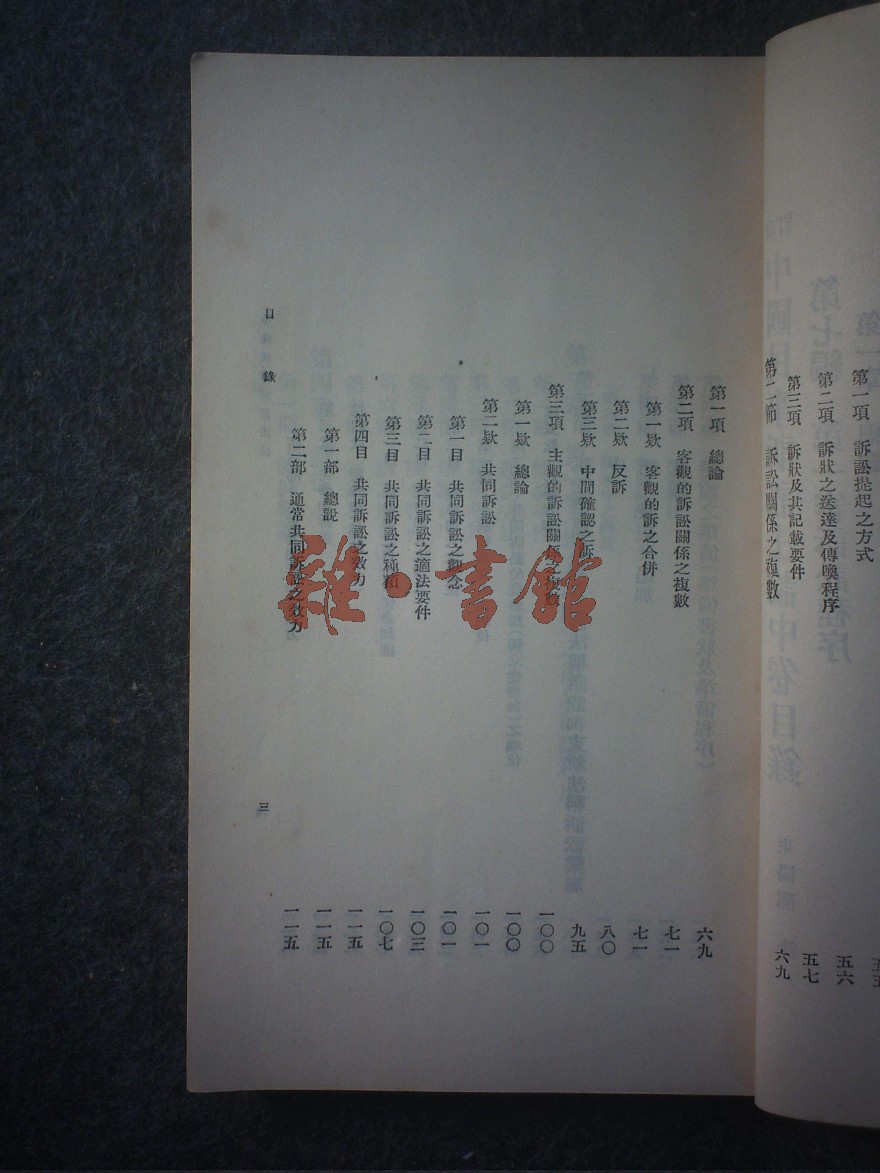 第一項　訴訟提起之方式　五五
第二項　訴狀之送達及傳喚程序　五六
第三項　訴狀及其記載要件　五七
第二節　訴訟關係之複數　六九
第一項　總論　六九
第二項　客觀的訴訟關係之複數　七一
第一欵　客觀的訴之合併　七一
第二欵　反訴　八〇
第三欵　中間確認之訴　九五
第三項　主觀的訴訟關係之複數　一〇〇
第一欵　總論　一〇〇
第二欵　共同訴訟　一〇一
第一目　共同訴訟之觀念　一〇一
第二目　共同訴訟之適法要件　一〇三
第三目　共同訴訟之種類　一〇七
第四目　共同訴訟之效力　一一五
第一部　總說　一一五
第二部　通常共同訴訟之效力　一一五
目錄　三
雜·書館